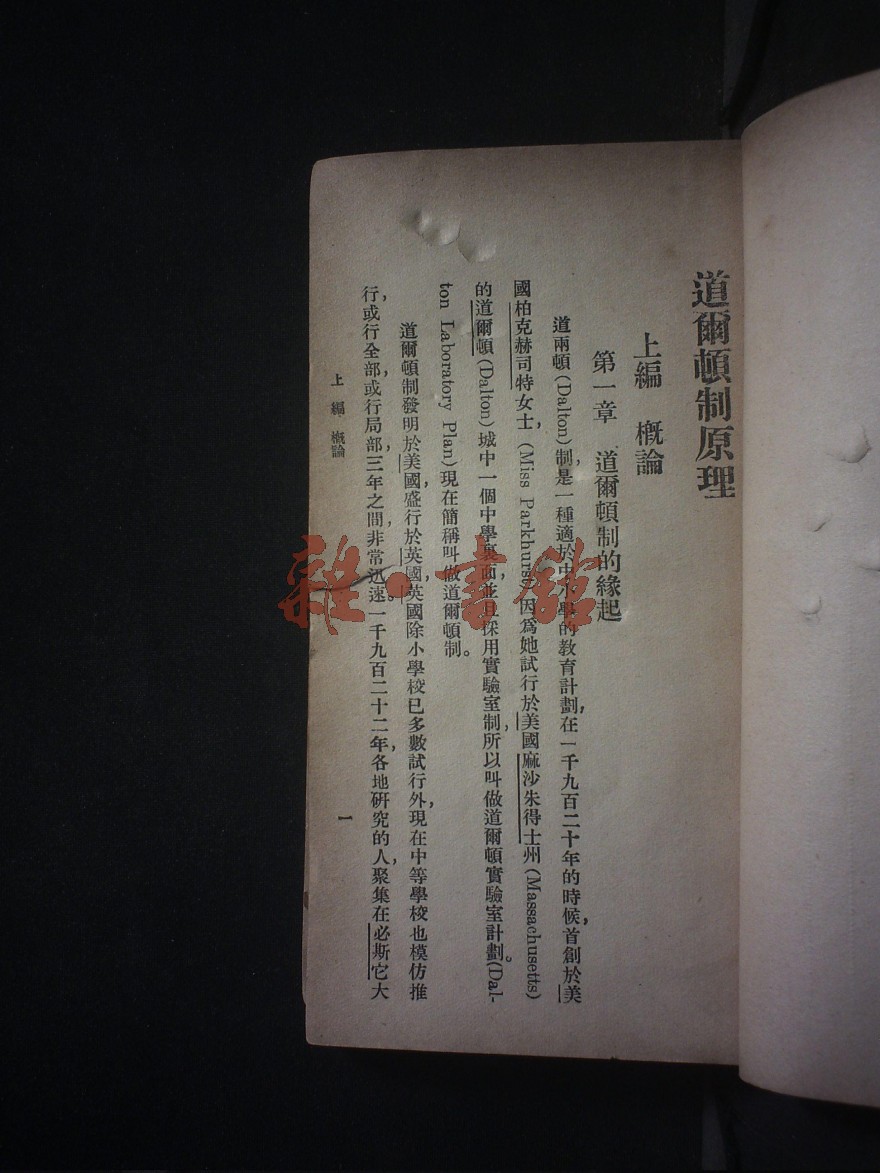 道爾頓制原理
上編 概論
第一章 道爾頓制的緣起
道兩頓(Dalton)制,是一種適於中小學的教育計劃,在一千九百二十年的時候,首創於美
國柏克赫司特女士,(Miss Parkhurst)因爲她試行於美國麻沙朱得士州(Massachusetts)
的道爾頓(Dalton)城中一個中學裏面,並且採用實驗室制,所以叫做道爾頓實驗室計劃。(Dal-
ton Laboratory Plan)現在簡稱叫做道爾頓制。
道爾頓制發明於美國,盛行於英國,英國除小學校已多數試行外,現在中等學校也模仿推
行,或行全部,或行局部,三年之間,非常迅速。一千九百二十二年,各地研究的人,聚集在必斯它大
上編 概論
一
雜·書館